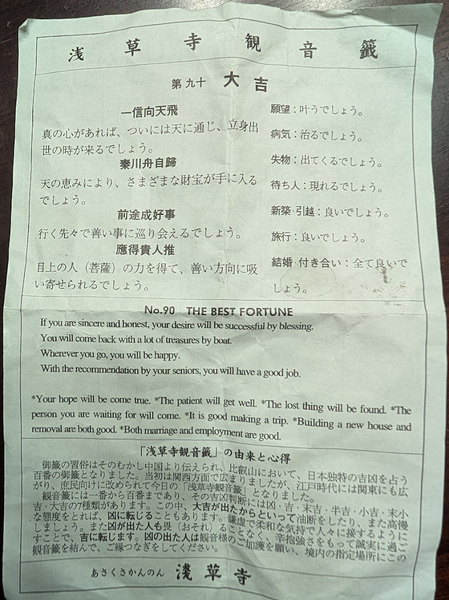 浅草寺観音籤
第九十 大吉
一信向天飛
真の心があれば、ついには天に通じ、立身出
世の時が来るでしょう。
秦川舟自歸
天の恵みにより、さまざまな財宝が手に入る
でしょう。
前途成好事
行く先々で善い事に巡り会えるでしょう。
應得貴人推
目上の人（菩薩）の力を得て、善い方向に吸
い寄せられるでしょう。
願望：叶うでしょう。
病気：治るでしょう。
失物：出てくるでしょう。
待ち人：現れるでしょう。
新築・引越：良いでしょう。
旅行：良いでしょう。
結婚・付き合い：全て良いで
しょう。
No.90 THE BEST FORTUNE
If you are sincere and honest, your desire will be successful by blessing.
You will come back with a lot of treasures by boat.
Wherever you go, you will be happy.
With the recommendation by your seniors, you will have a good job.
*Your hope will be come true. *The patient will get well. *The lost thing will be found. *The
person you are waiting for will come. *It is good making a trip. *Building a new house and
removal are both good. *Both marriage and employment are good.
「浅草寺観音籤」の由来と心得
御籤の習俗はそのむかし中国より伝えられ、比叡山において、日本独特の吉凶を占う
百番の御籤となりました。当初は関西方面で広まりましたが、江戸時代には関東にも広
がり、庶民向けに改められて今日の「浅草寺観音籤」となりました。
観音籤には一番から百番まであり、その吉凶判断には凶・吉・末吉・半吉・小吉・末小
吉・大吉の7種類があります。この中、大吉が出たからといって油断をしたり、また高慢
な態度をとれば、凶に転じることもあります。謙虚で柔和な気持で人々に接するように
しましょう。また凶が出た人も畏（おそ）れることなく、辛抱強さをもって誠実に過ご
すことで、吉に転じます。凶の出た人は観音様のご加護を願い、境内の指定場所にこの
観音籤を結んで、ご縁つなぎをしてください。
あさくさかんのん 淺草寺